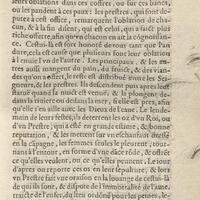 leurs oblations dans ces coffres, ou sur ces bancs,
ou les pandent à ces paux : les prestres, qui sont de-
putez à cest office, remarquent l'oblation de cha-
cun, & à la fin disent, qui est celui, qui a faict plus
riche offerte, afin qu'vn chacun en ait la cognoissan-
ce. Cestui-là est fort honoré devant tant que l'an
dure, cela est cause que plusieurs font leur oblation
à l'enuie l'vn de l'autre. Les principaux, & les au-
tres aussi mangent du pain, du fruict, & des vian-
des qu'on a offert, le reste est distribué entre les Sei-
gneurs, & les prestres. Ils descendent puis apres leur
statue quand la nuict est venue, & la plongent de-
dans la riviere ou dedans la mer, si elle est pres, afin
qu'elle s'en aille avec les Dieux de l'eaue. Le lende-
main de leurs festes, ils deterrent les os d'vn Roi, ou
d'vn Prestre, qui a esté en grande estime, & bonne
reputation, & les mettent sur vn eschafaut dressé
en la campagne, les femmes seules le pleurent, tour-
nans à l'entour, en forme d'vne dāce rōde, & offrēt
ce qu'elles veulent, ou ce qu'elles peuuent. Le iour
d'apres on reporte ces os en leur sepulture, & lors
vn Prestre fait vne oraison en la louange de cestui-là
de qui ils sont, & dispute de l'immortalité de l'ame,
traicte de l'enfer, du lieu ordōné pour les peines, le-